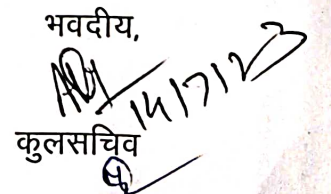 भवदीय,
14/7/23
कुलसचिव